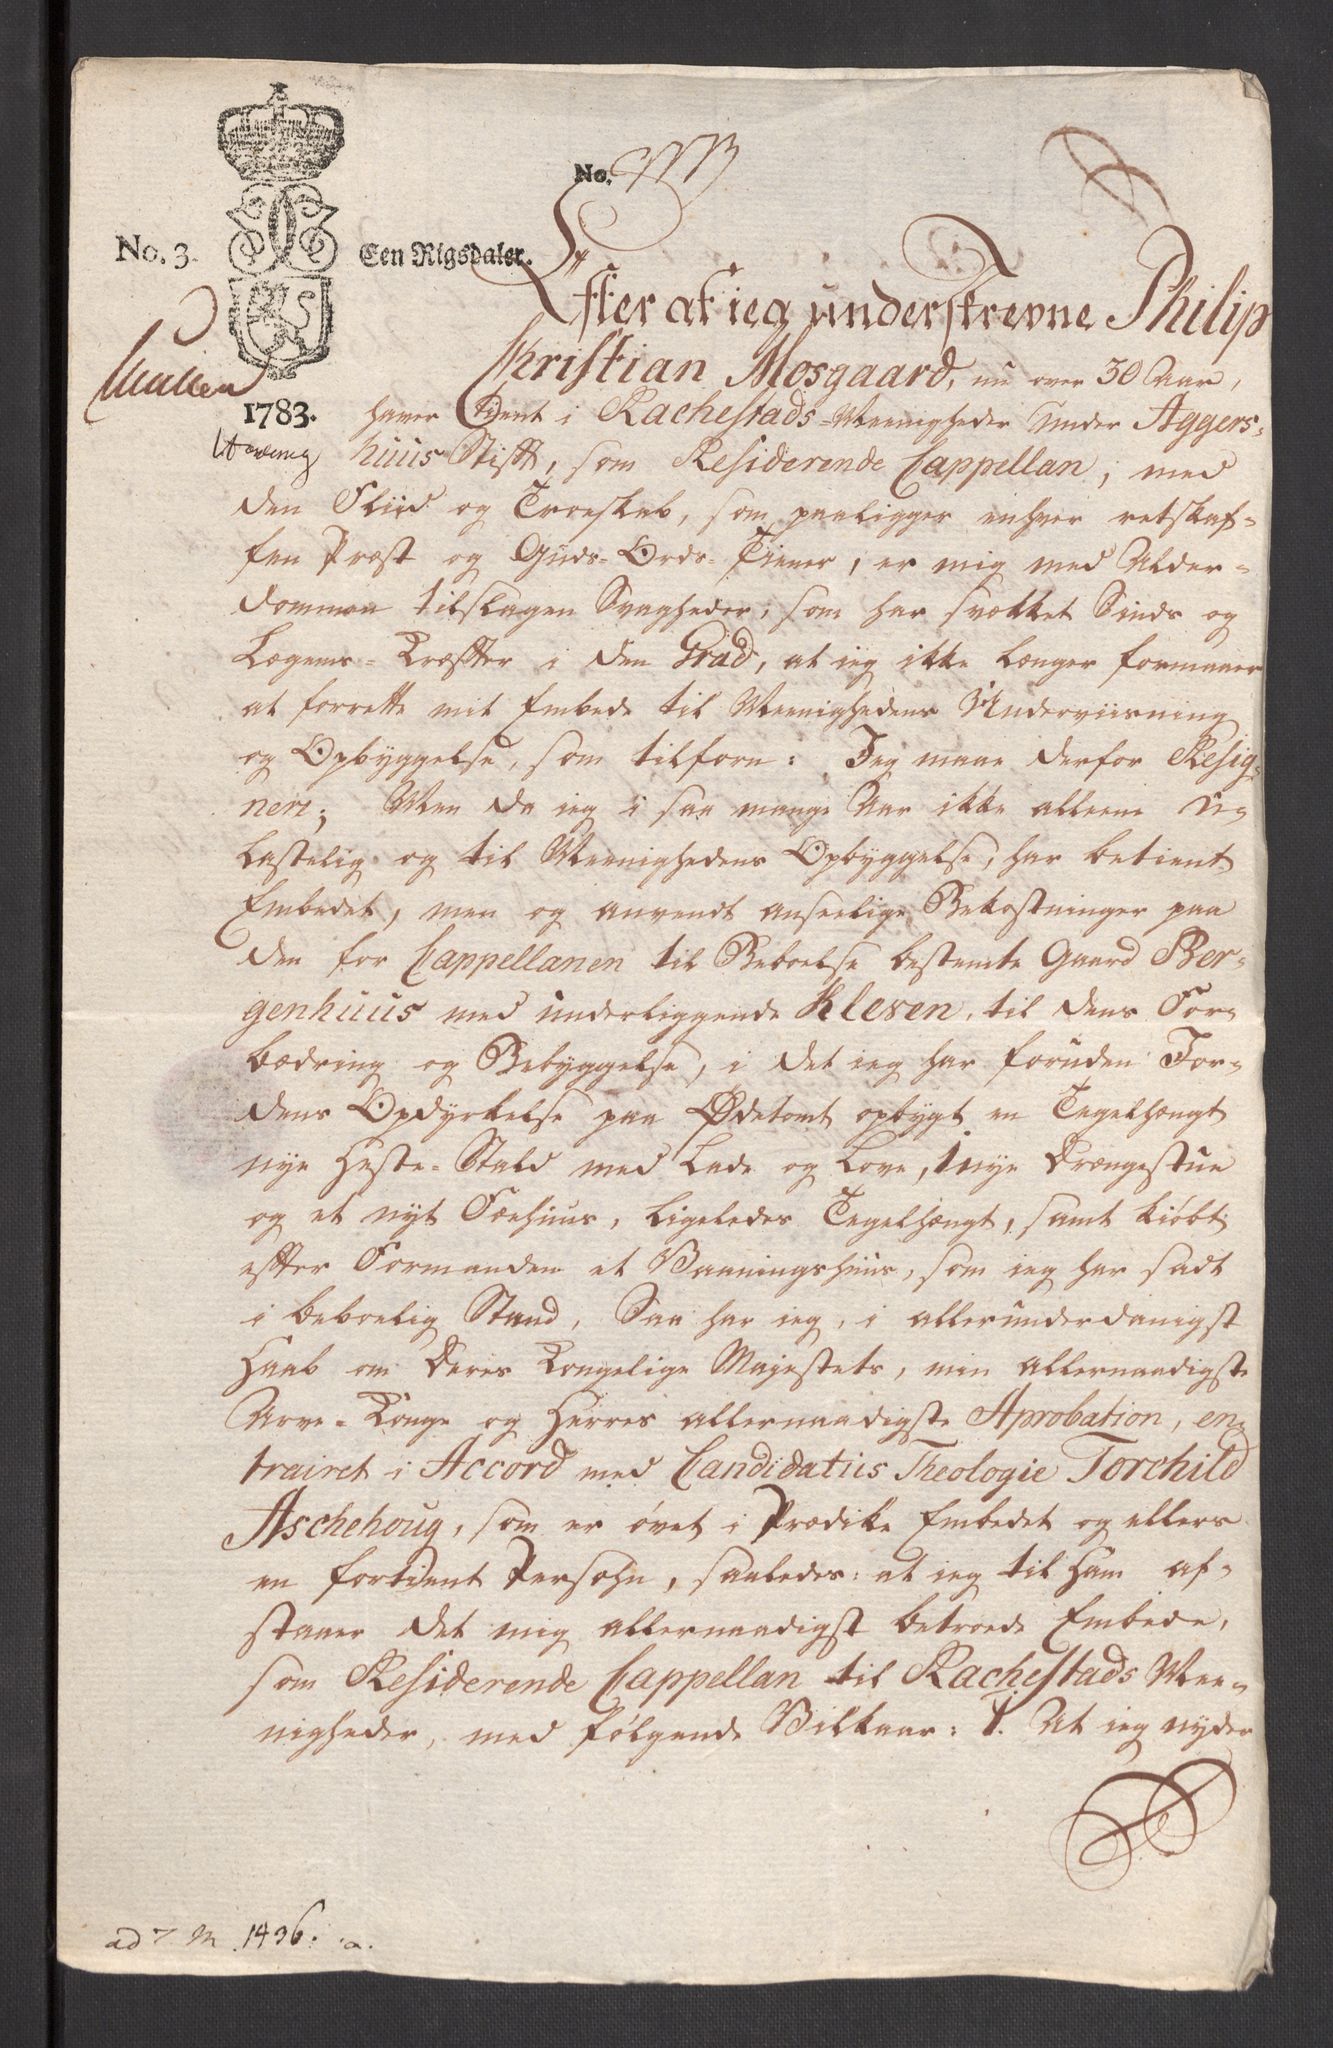 No.
No. 3. Een Rigsdaler.
1783.
Efter at ieg underskrevne Philip
Christian Mosgaard, nu over 30 Aar,
haver tient i Rachestads-Meenigheder under Aggers-
huus Stifft, som Residerende Cappellan, med
den Fliid og Troeskab, som paaligger enhver retskaf-
fen Præst og Guds-Ords-Tiener, er mig med Alder-
dommen tilslagen Svagheder, som har svækket Sinds og
Legems-Kræffter i den Grad, at ieg ikke længer formaaer
at forrette mit Embede til Meenighedens Underviisning
og Opbyggelse, som tilforn: Jeg maae derfor Resig-
nere; Men da ieg i saa mange Aar ikke alleene u-
lastelig og til Meenighedens Opbyggelse, har betient
Embedet, men og anvendt anseelige Bekostninger paa
den for Cappellanen til Beboelse bestemte Gaard Ber-
genhuus med underliggende Kleven, til dens For-
bædring og Bebyggelse, i det ieg har foruden Jor-
dens Opdyrkelse paa Ødetomt opbygt en Tegelhængt
nye Heste-Stald med Lade og Love, 1 nye Drængestue
og et nyt Fæehuus, ligeledes Tegelhængt, samt kiøbt
effter Formanden et Vaaningshuus, som ieg har sadt
i beboelig Stand, Saa har ieg, i allerunderdanigst
Haab om Deres Kongelige Majestets, min allernaadigste
Arve-Konge og Herres allernaadigste Aprobation, en-
trairet i Accord med Candidatus Theologie Torchild
Aschehoug, som er øvet i Prædike Embedet og ellers
en fortient Persohn, saaledes: at ieg til Ham af-
staaer det mig allernaadigst betroede Embede,
som Residerende Cappellan til Rachestads Mee-
nigheder, med følgende Vilkaar: 1. At ieg nyder
ad 7 M 1436. a.